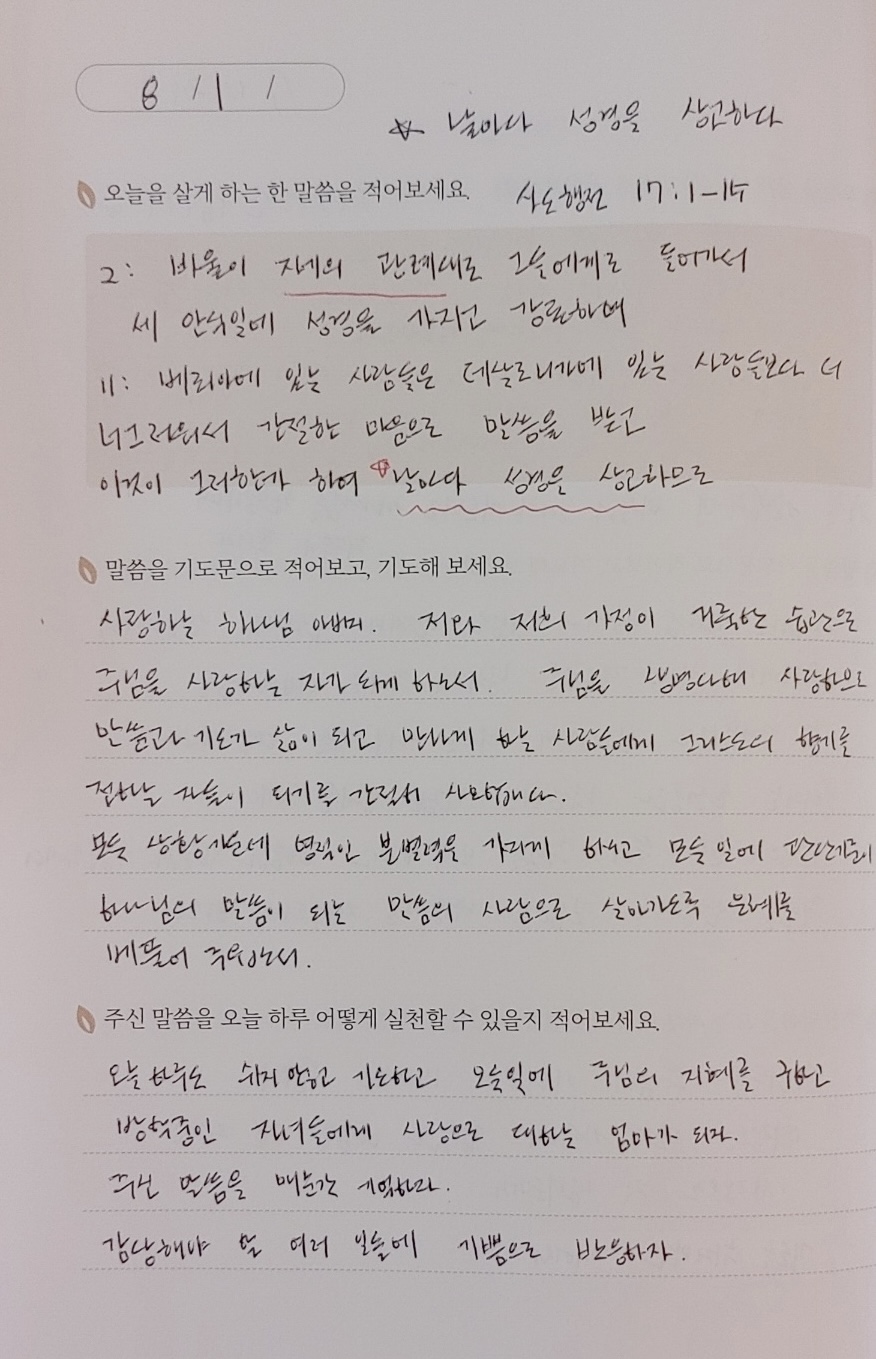 8 / 1 /
☆ 날마다 성경을 상고하다
오늘을 살게 하는 한 말씀을 적어보세요. 사도행전 17:1-15
2: 바울이 자네의 관례대로 그들에게로 들어가서
세 안식일에 성경을 가지고 강론하며
11: 베뢰아에 있는 사람들은 데살로니가에 있는 사람들보다 더
너그러워서 간절한 마음으로 말씀을 받고
이것이 그러한가 하여 ☆날마다 성경을 상고하므로
말씀을 기도문으로 적어보고, 기도해 보세요.
사랑하는 하나님 아버지. 저와 저희 가정이 거룩한 습관으로
주님을 사랑하는 자가 되게 하소서. 주님을 사랑함으로
말씀과 기도가 삶이 되고 만나게 하실 사람들에게 그리스도의 향기를
전하는 자들이 되기를 간절히 사모합니다.
모든 상황가운데 영적인 분별력을 가지게 하시고 모든 일에 판단기준이
하나님의 말씀이 되는 말씀의 사람으로 살아가도록 은혜를
베풀어 주옵소서.
주신 말씀을 오늘 하루 어떻게 실천할 수 있을지 적어보세요.
오늘 하루도 쉬지 않고 기도하고 모든일에 주님의 지혜를 구하고
방학중인 자녀들에게 사랑으로 대하는 엄마가 되자.
주신 말씀을 매순간 기억하자.
감당해야 할 여러 일들에 기쁨으로 반응하자.